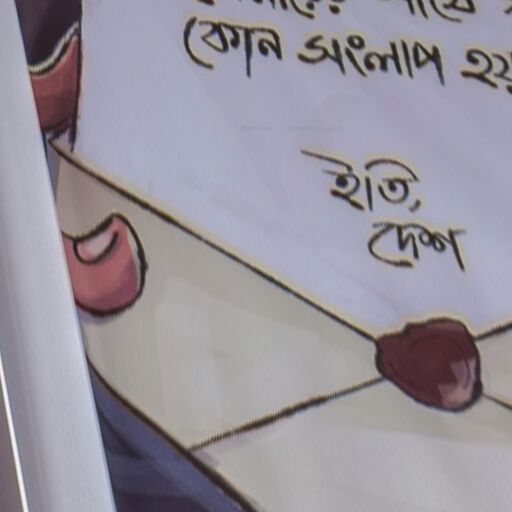 কোন সংলাপ হয়
ইতি,
দেশ